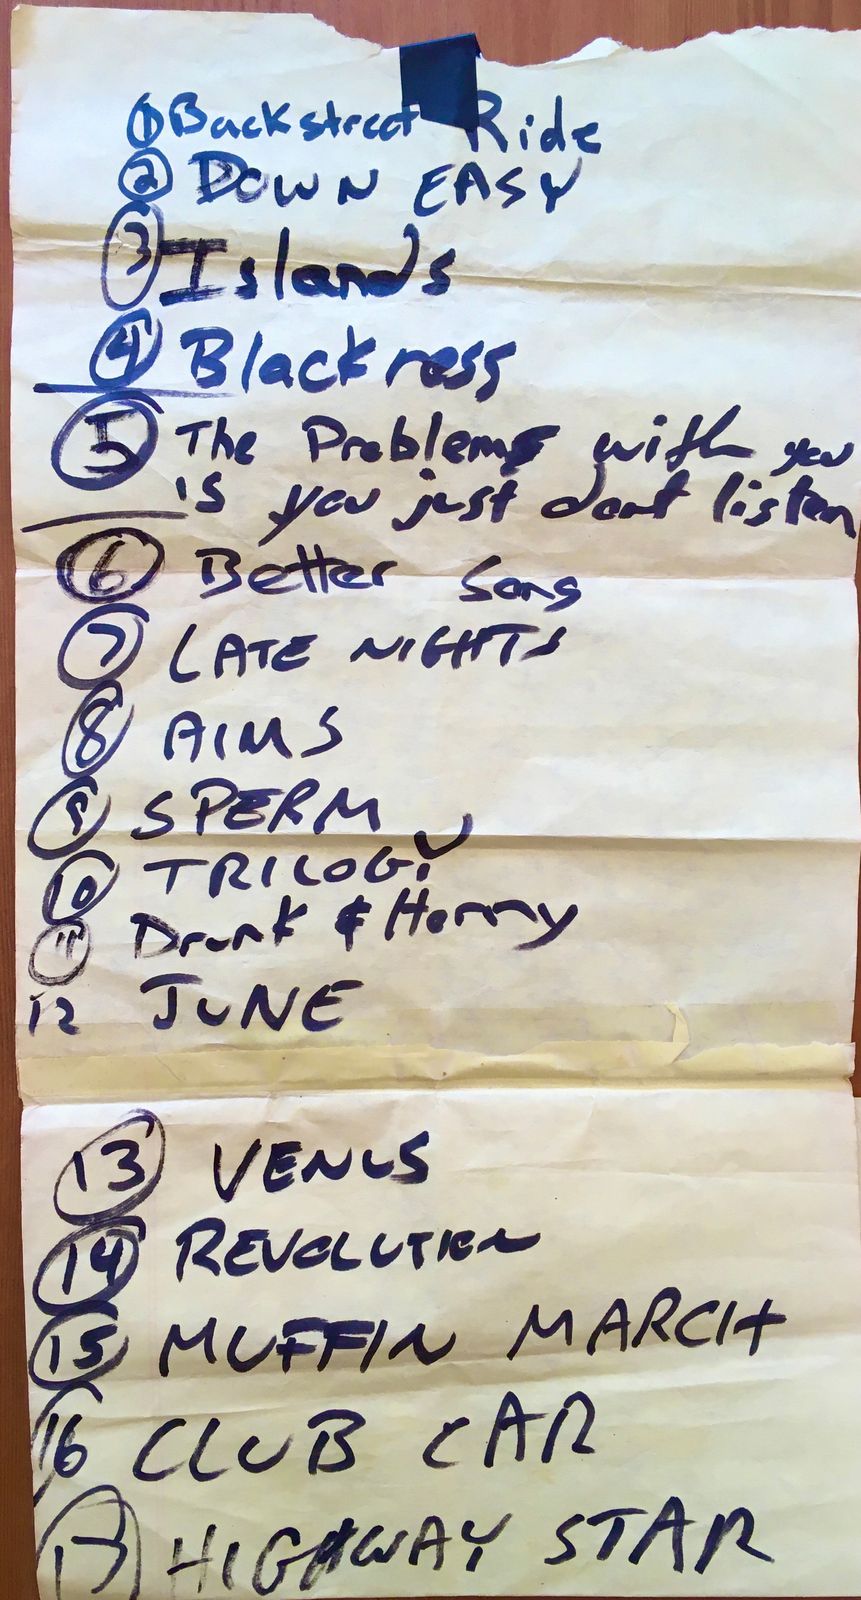 1 Backstreet Ride
2 DOWN EASY
3 Islands
4 Blackness
5 The Problem with you
is you just dont listen
6 Better Song
7 LATE NIGHTS
8 AIMS
9 SPERM
10 TRILOGY
11 Drunk & Horny
12 JUNE
13 VENUS
14 REVOLUTION
15 MUFFIN MARCH
16 CLUB CAR
17 HIGHWAY STAR